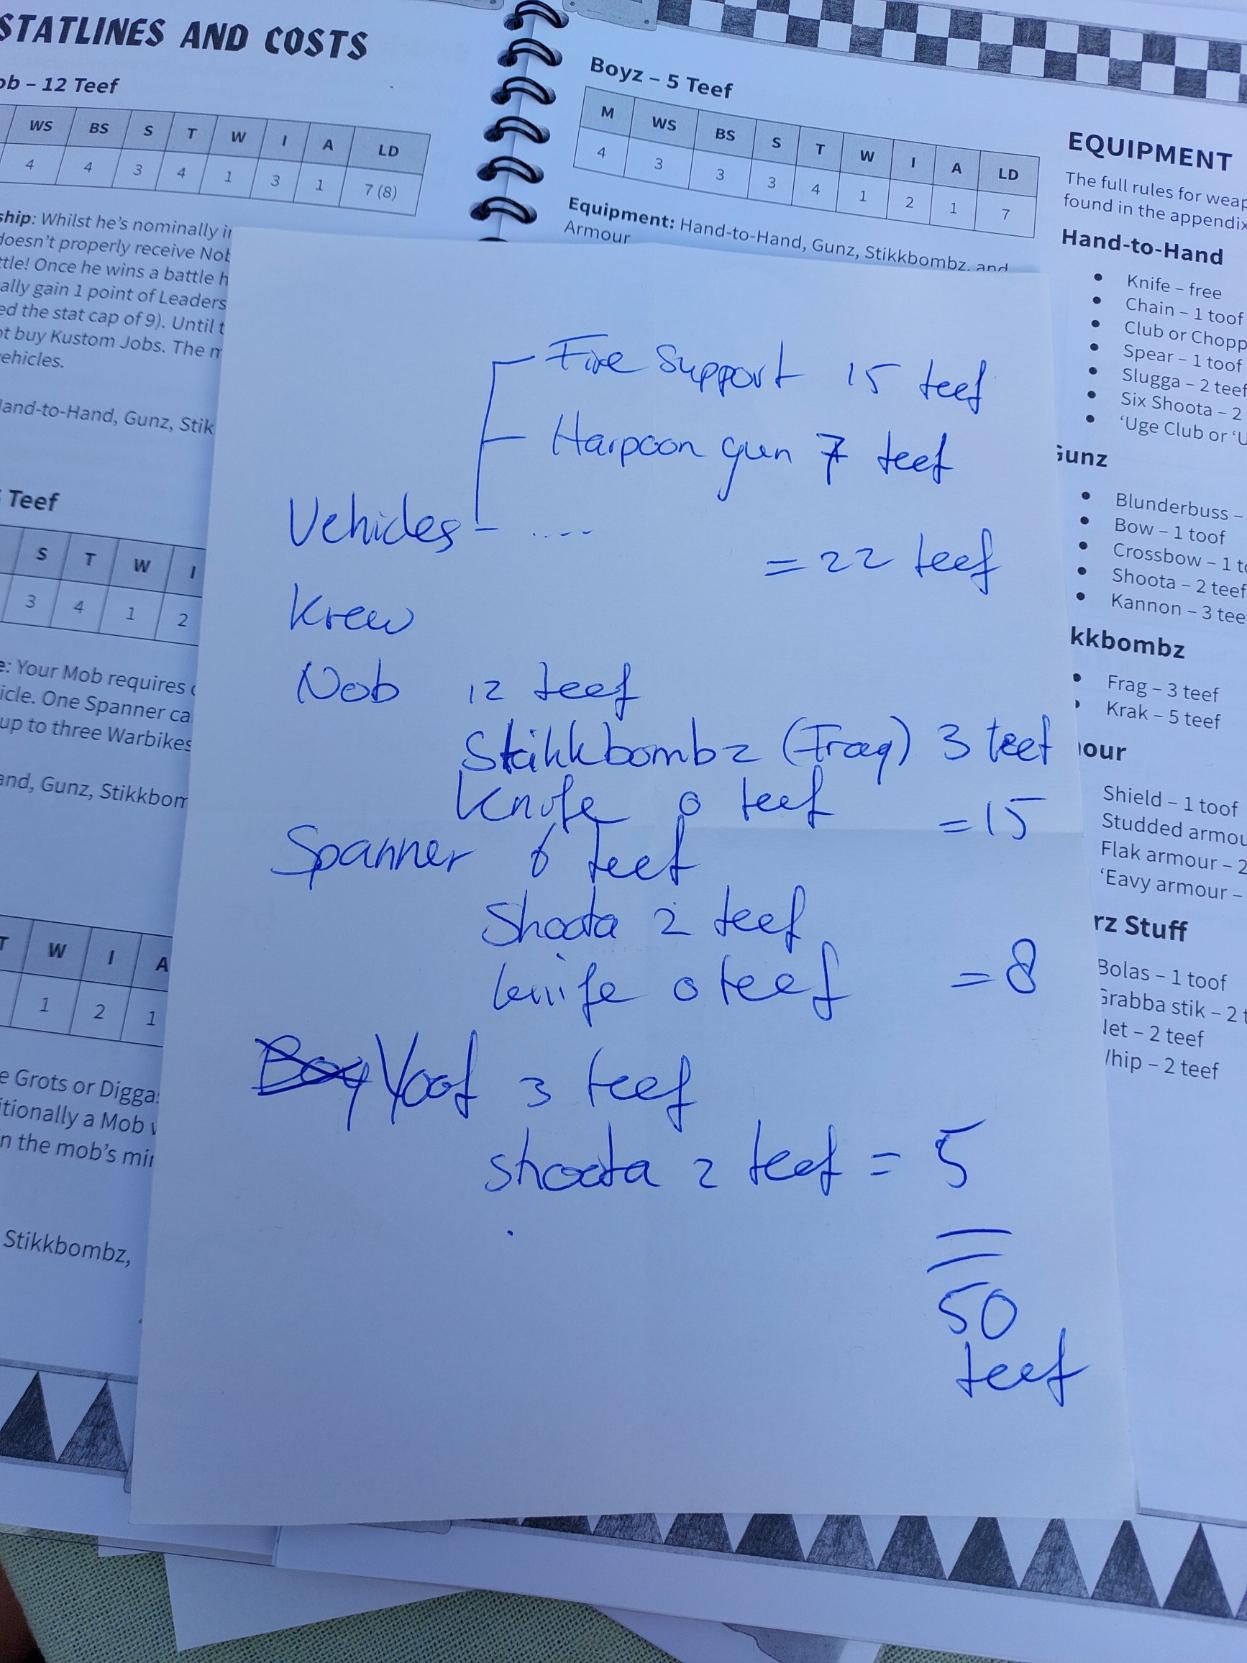 STATLINES AND COSTS
ob – 12 Teef
WS BS S T W I A LD
4 4 3 4 1 3 1 7 (8)
ship: Whilst he's nominally i
doesn't properly receive Nob
ttle! Once he wins a battle h
ally gain 1 point of Leaders
ed the stat cap of 9). Until t
ot buy Kustom Jobs. The m
ehicles.
Hand-to-Hand, Gunz, Stik
Teef
S T W I
3 4 1 2
e: Your Mob requires
icle. One Spanner ca
up to three Warbikes
and, Gunz, Stikkbom
T W I A
1 2 1
e Grots or Digga
itionally a Mob
n the mob's mi
Stikkbombz,
Boyz – 5 Teef
M WS BS S T W I A LD
4 3 3 3 4 1 2 1 7
Equipment: Hand-to-Hand, Gunz, Stikkbombz, and
Armour
EQUIPMENT
The full rules for weap
found in the appendix
Hand-to-Hand
Knife – free
Chain – 1 toof
Club or Chopp
Spear – 1 toof
Slugga – 2 teef
Six Shoota – 2
'Uge Club or 'U
Gunz
Blunderbuss –
Bow – 1 toof
Crossbow – 1 to
Shoota – 2 teef
Kannon – 3 tee
kkbombz
Frag – 3 teef
Krak – 5 teef
our
Shield – 1 toof
Studded armou
Flak armour – 2
'Eavy armour –
rz Stuff
Bolas – 1 toof
Grabba stik – 2 t
Net – 2 teef
Whip – 2 teef
Fire Support 15 teef
Harpoon gun 7 teef
Vehicles - ....
= 22 teef
Krew
Nob 12 teef
Stikkbombz (Frag) 3 teef
Knife 0 teef = 15
Spanner 6 teef
Shoota 2 teef
knife 0 teef = 8
Boy Yoof 3 teef
shoota 2 teef = 5
50
teef